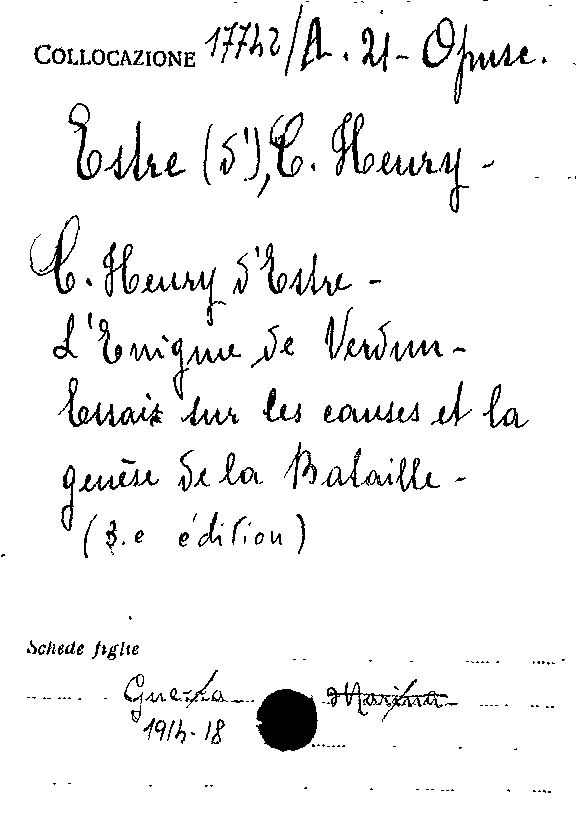 COLLOCAZIONE 17742/A. 21- Opusc.
Estre (d'), C. Henry -
C. Henry d'Estre -
L'Enigme de Verdun -
Essais sur les causes et la
genèse de la Bataille -
(3.e édition)
Schede figlie
Guerra Marina
1914-18